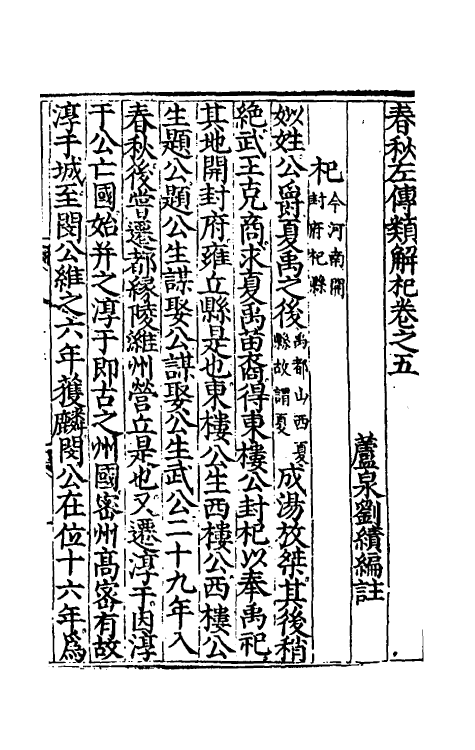 春秋左傳類解杞卷之五
蘆泉劉績編註
杞今河南開封府杞縣
姒姓公爵夏禹之後禹都山西夏縣故謂夏成湯放桀其後稍
絶武王克商求夏禹苗裔得東樓公封杞以奉禹祀
其地開封府雍立縣是也東樓公生西樓公西樓公
生題公題公生謀娶公謀娶公生武公二十九年入
春秋後嘗遷都緣陵維州營立是也又遷淳于因淳
于公亡國始并之淳于即古之州國宻州髙宻有故
淳于城至閔公維之六年獲麟閔公在位十六年為